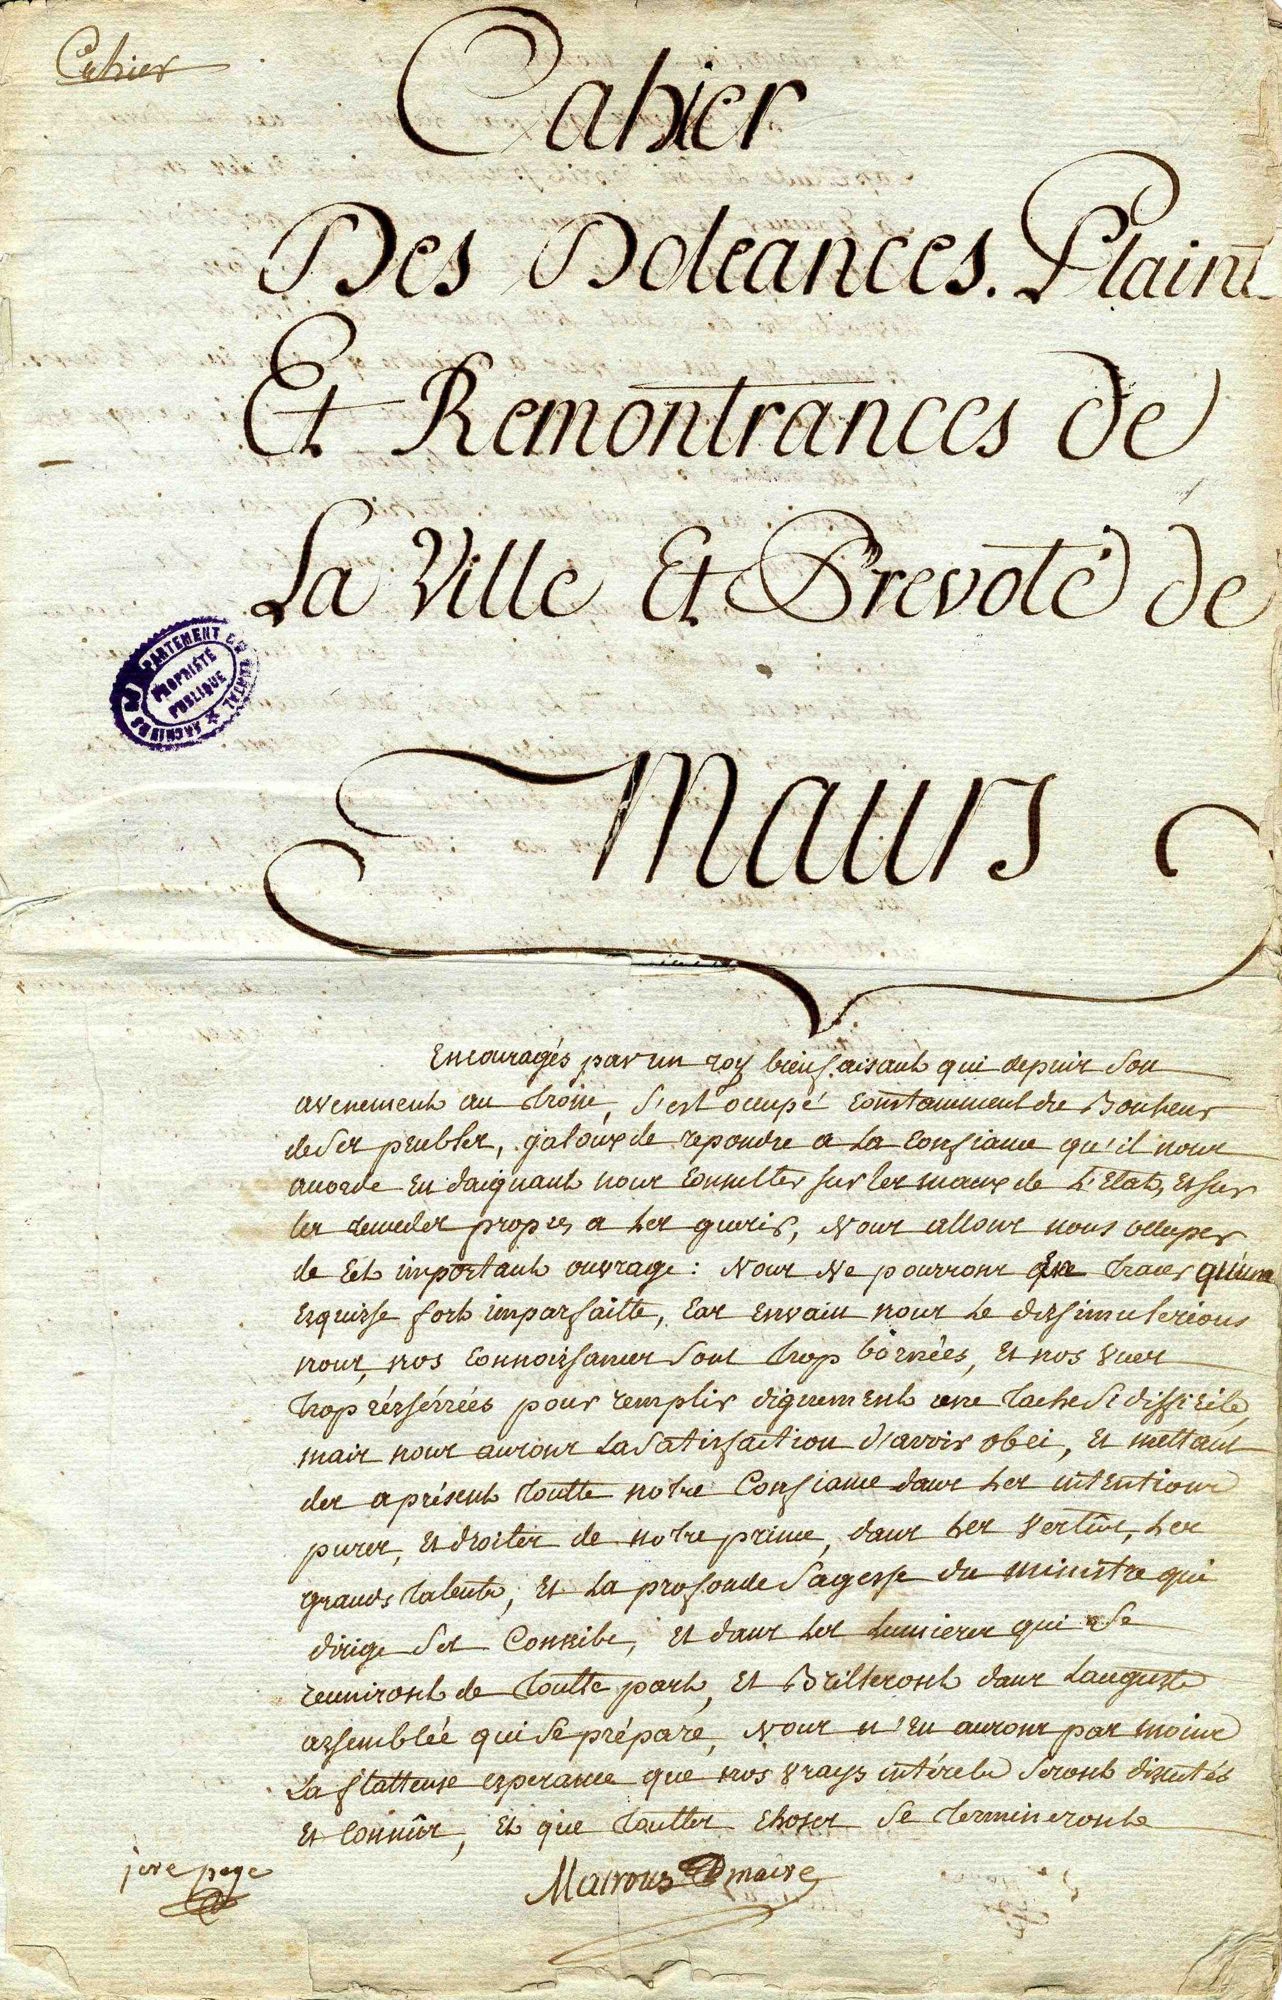 Cahier
Cahier
Des Doleances. Plaint
Et Remontrances de
La Ville Et Prevoté de
ARCHIVES DU DÉPARTEMENT DU CANTAL
PROPRIÉTÉ
PUBLIQUE
Maurs
Encouragés par un roy bienfaisant qui depuis son
avenement au trône, s'est occupé constamment du Bonheur
de ses peubles, jaloux de repondre a la confiance qu'il nous
accorde en daignant nous consulter sur les maux de l'Etat, et sur
les remedes propres a les guerir, Nous allons nous occuper
de cet important ouvrage: Nous Ne pourrons en tracer qu'une
esquisse fort imparfaitte, car envain nous le dissimulerions
nous, nos connoissances sont trop bornées, et nos vues
trop résserrées pour remplir dignement une tache si difficile,
mais nous aurons la satisfaction d'avoir obei, et mettant
des a présent toutte notre Confiance dans les intentions
pures, et droites de notre prince, dans les vertus, les
grands talents, et la profonde sagesse du ministre qui
dirige ses Conseils, et dans les lumieres qui se
reuniront de toutte part, et Brilleront dans l'auguste
assemblée qui se prépare, Nous n'en aurons pas moins
La flatteuse esperance que nos vrays intérets seront discutés
et connûs, et que touttes choses se termineront
1ere page
Mairous maire